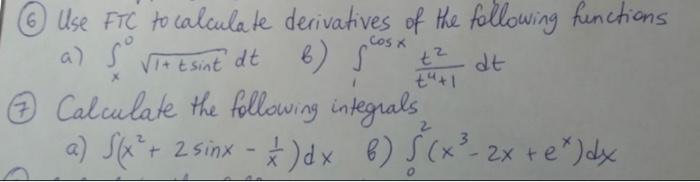 ⑥ Use FTC to calculate derivatives of the following functions
a) ∫ₓ⁰ √(1+t sint) dt   б) ∫₁^(cos x) t²/(t⁴+1) dt
⑦ Calculate the following integrals
a) ∫(x² + 2 sinx - 1/x) dx   б) ∫₀² (x³ - 2x + eˣ) dx